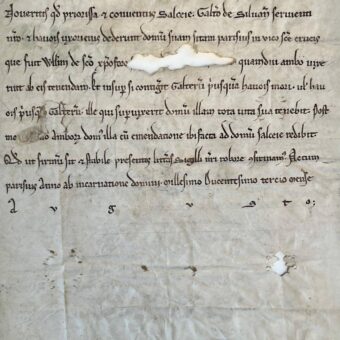 Noveritis qd priorissa et conventus Salceie. Galtero de Silviaco servienti
nostro. et hauois uxori eius dederunt domum suam sitam parisius in vico sce crucis
que fuit Willmi de sco xpoforo quamdiu ambo vixe
rint ab eis tenendam. et insup si contigit Galterum pusquam hauois mori. ul hau
ois pusquam Galterum. ille qui supvixerit domum illam tota vita sua tenebit. post
mo amborum dom illa cu emendatione ibi facta ad domum salceie redibit.
Qd ut firmum sit et stabile presentes litteras Sigilli nri robore confirmamus. Actum
parisius anno ab incarnatione domini. Millesimo Ducentesimo tercio mense
A v g v s t o;